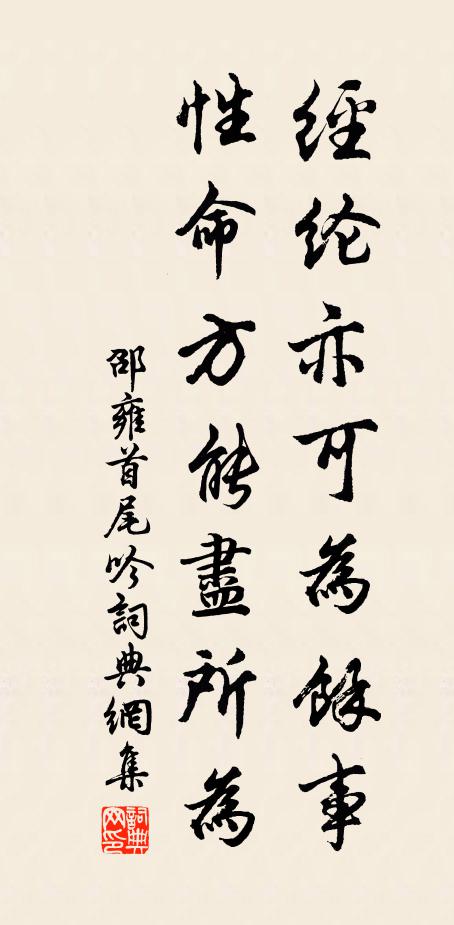 經纶亦可為餘事
性命方能盡所為
邵雍首尾吟詞典網集
詞典网印